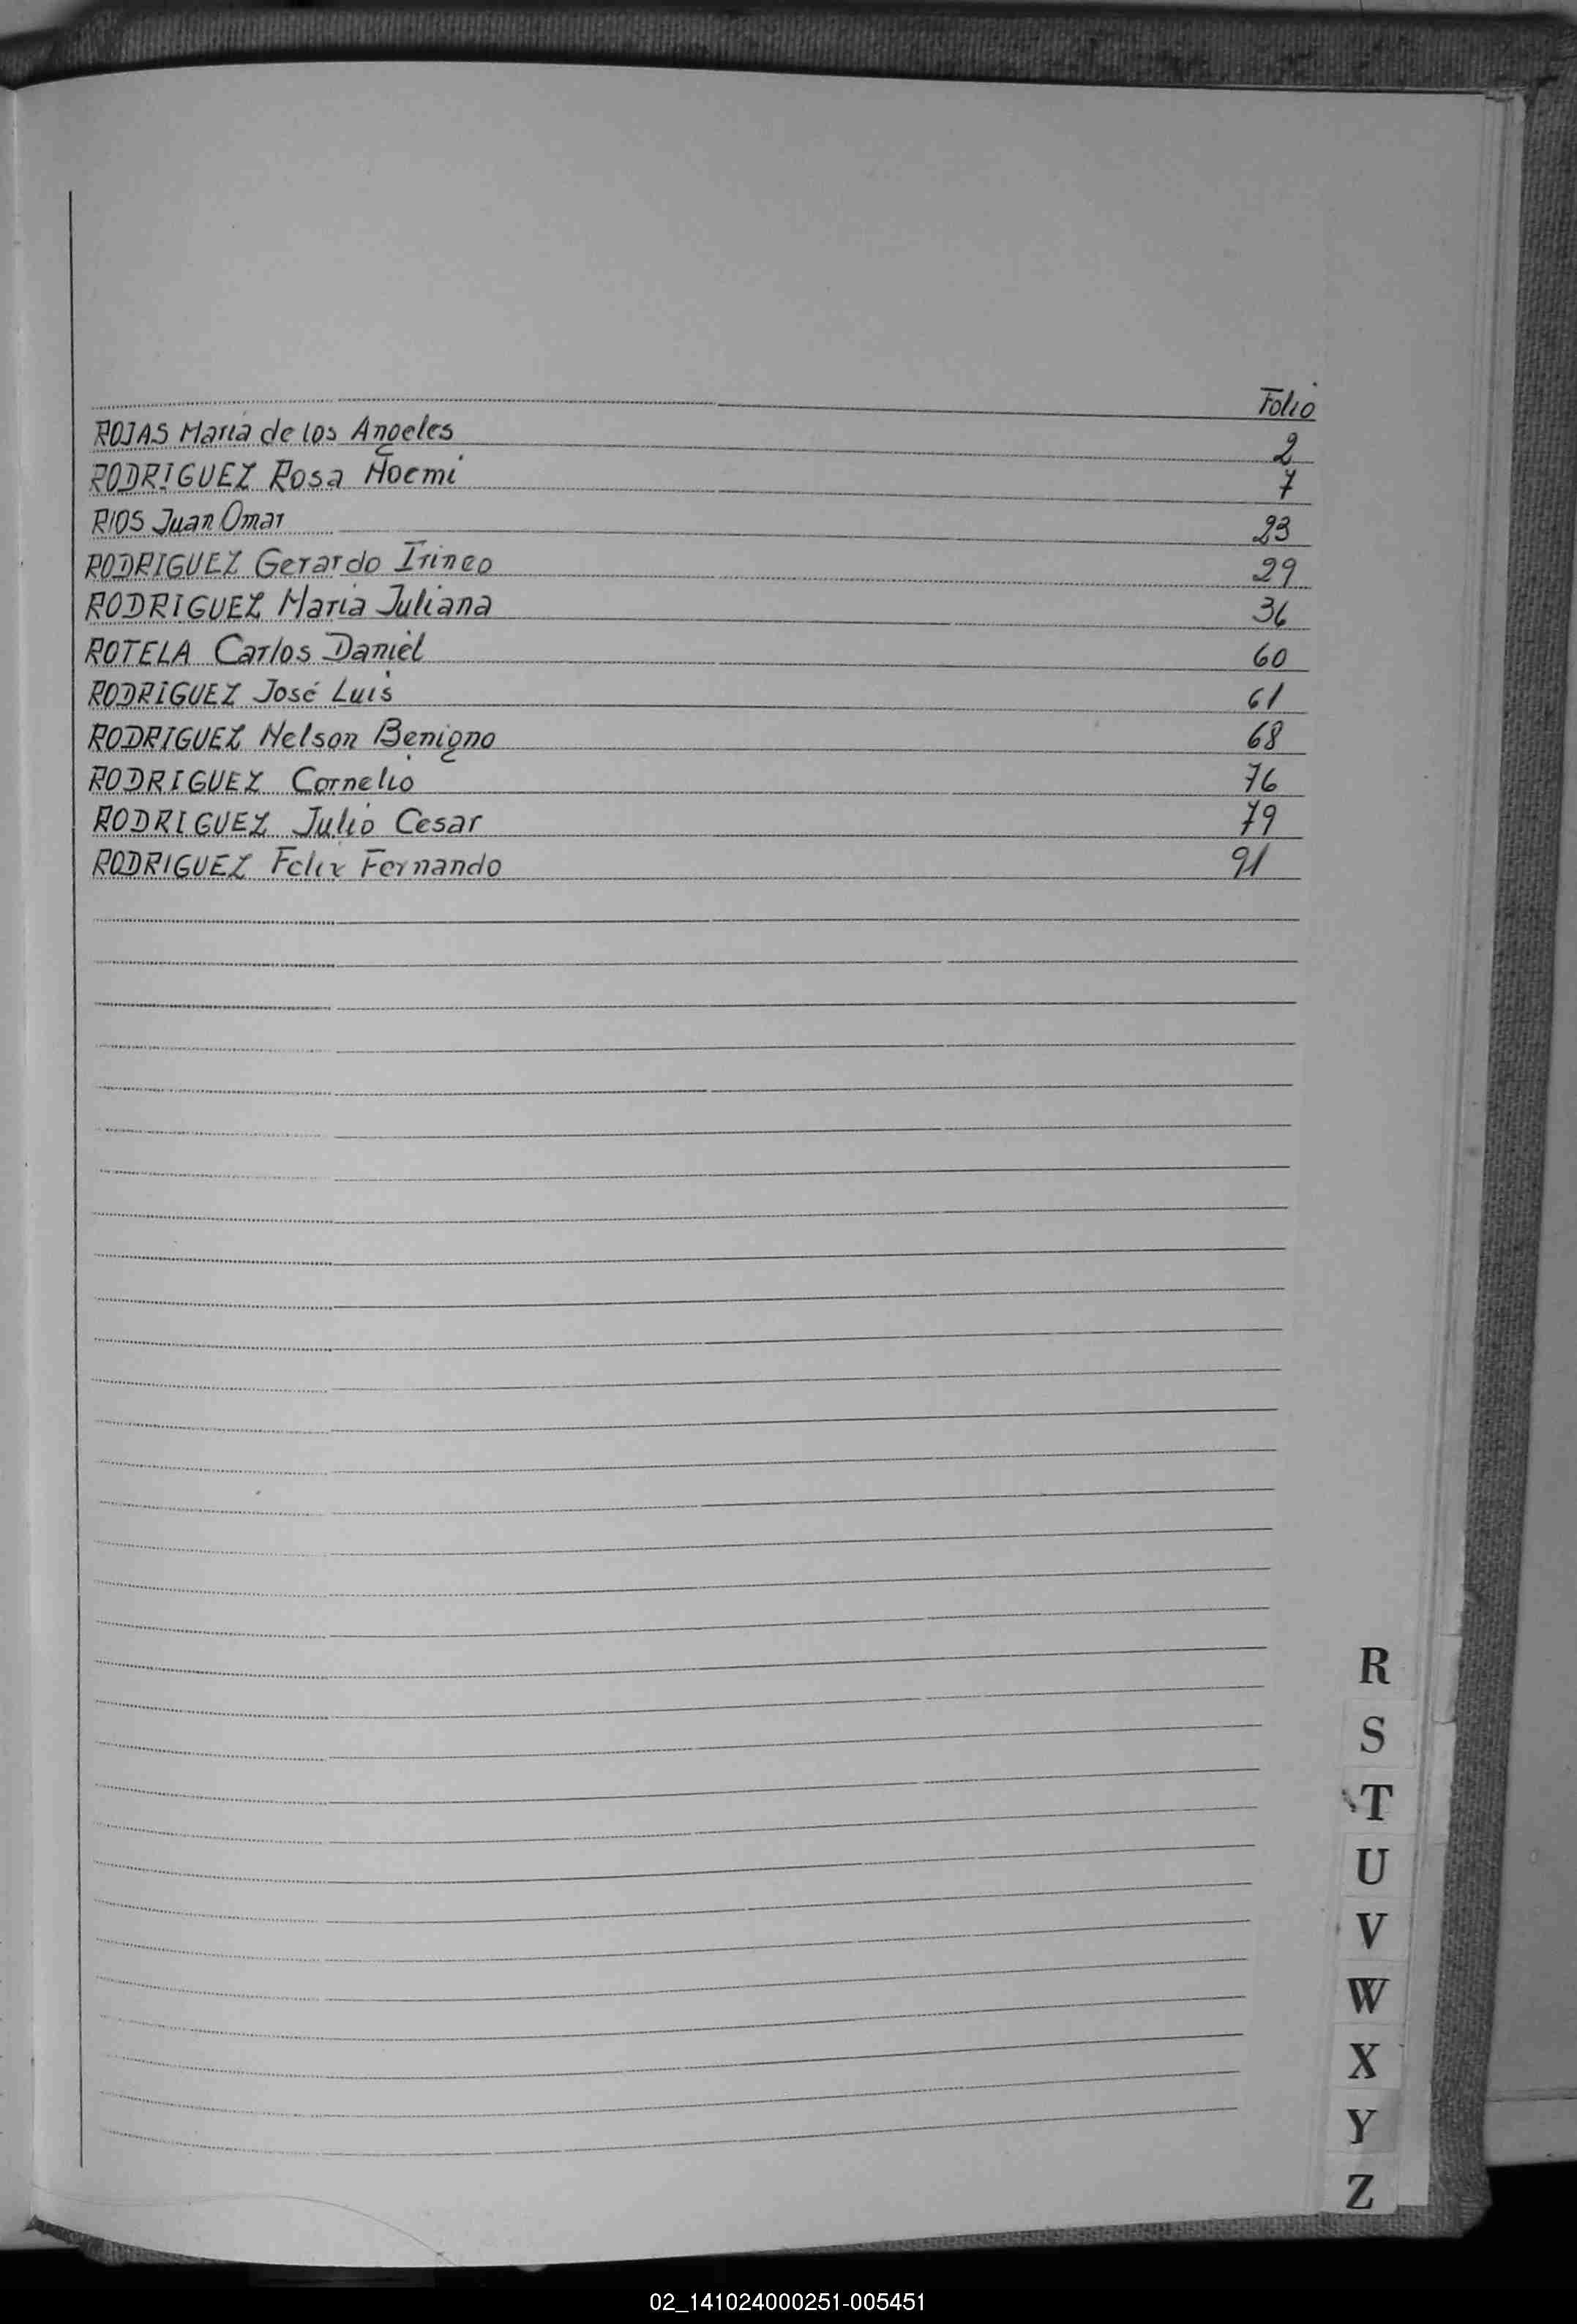 Folio
ROJAS María de los Angeles 2
RODRIGUEZ Rosa Noemi 7
RIOS Juan Omar 23
RODRIGUEZ Gerardo Irineo 29
RODRIGUEZ María Juliana 36
ROTELA Carlos Daniel 60
RODRIGUEZ José Luis 61
RODRIGUEZ Nelson Benigno 68
RODRIGUEZ Cornelio 76
RODRIGUEZ Julio Cesar 79
RODRIGUEZ Felix Fernando 91
R
S
T
U
V
W
X
Y
Z
02_141024000251-005451